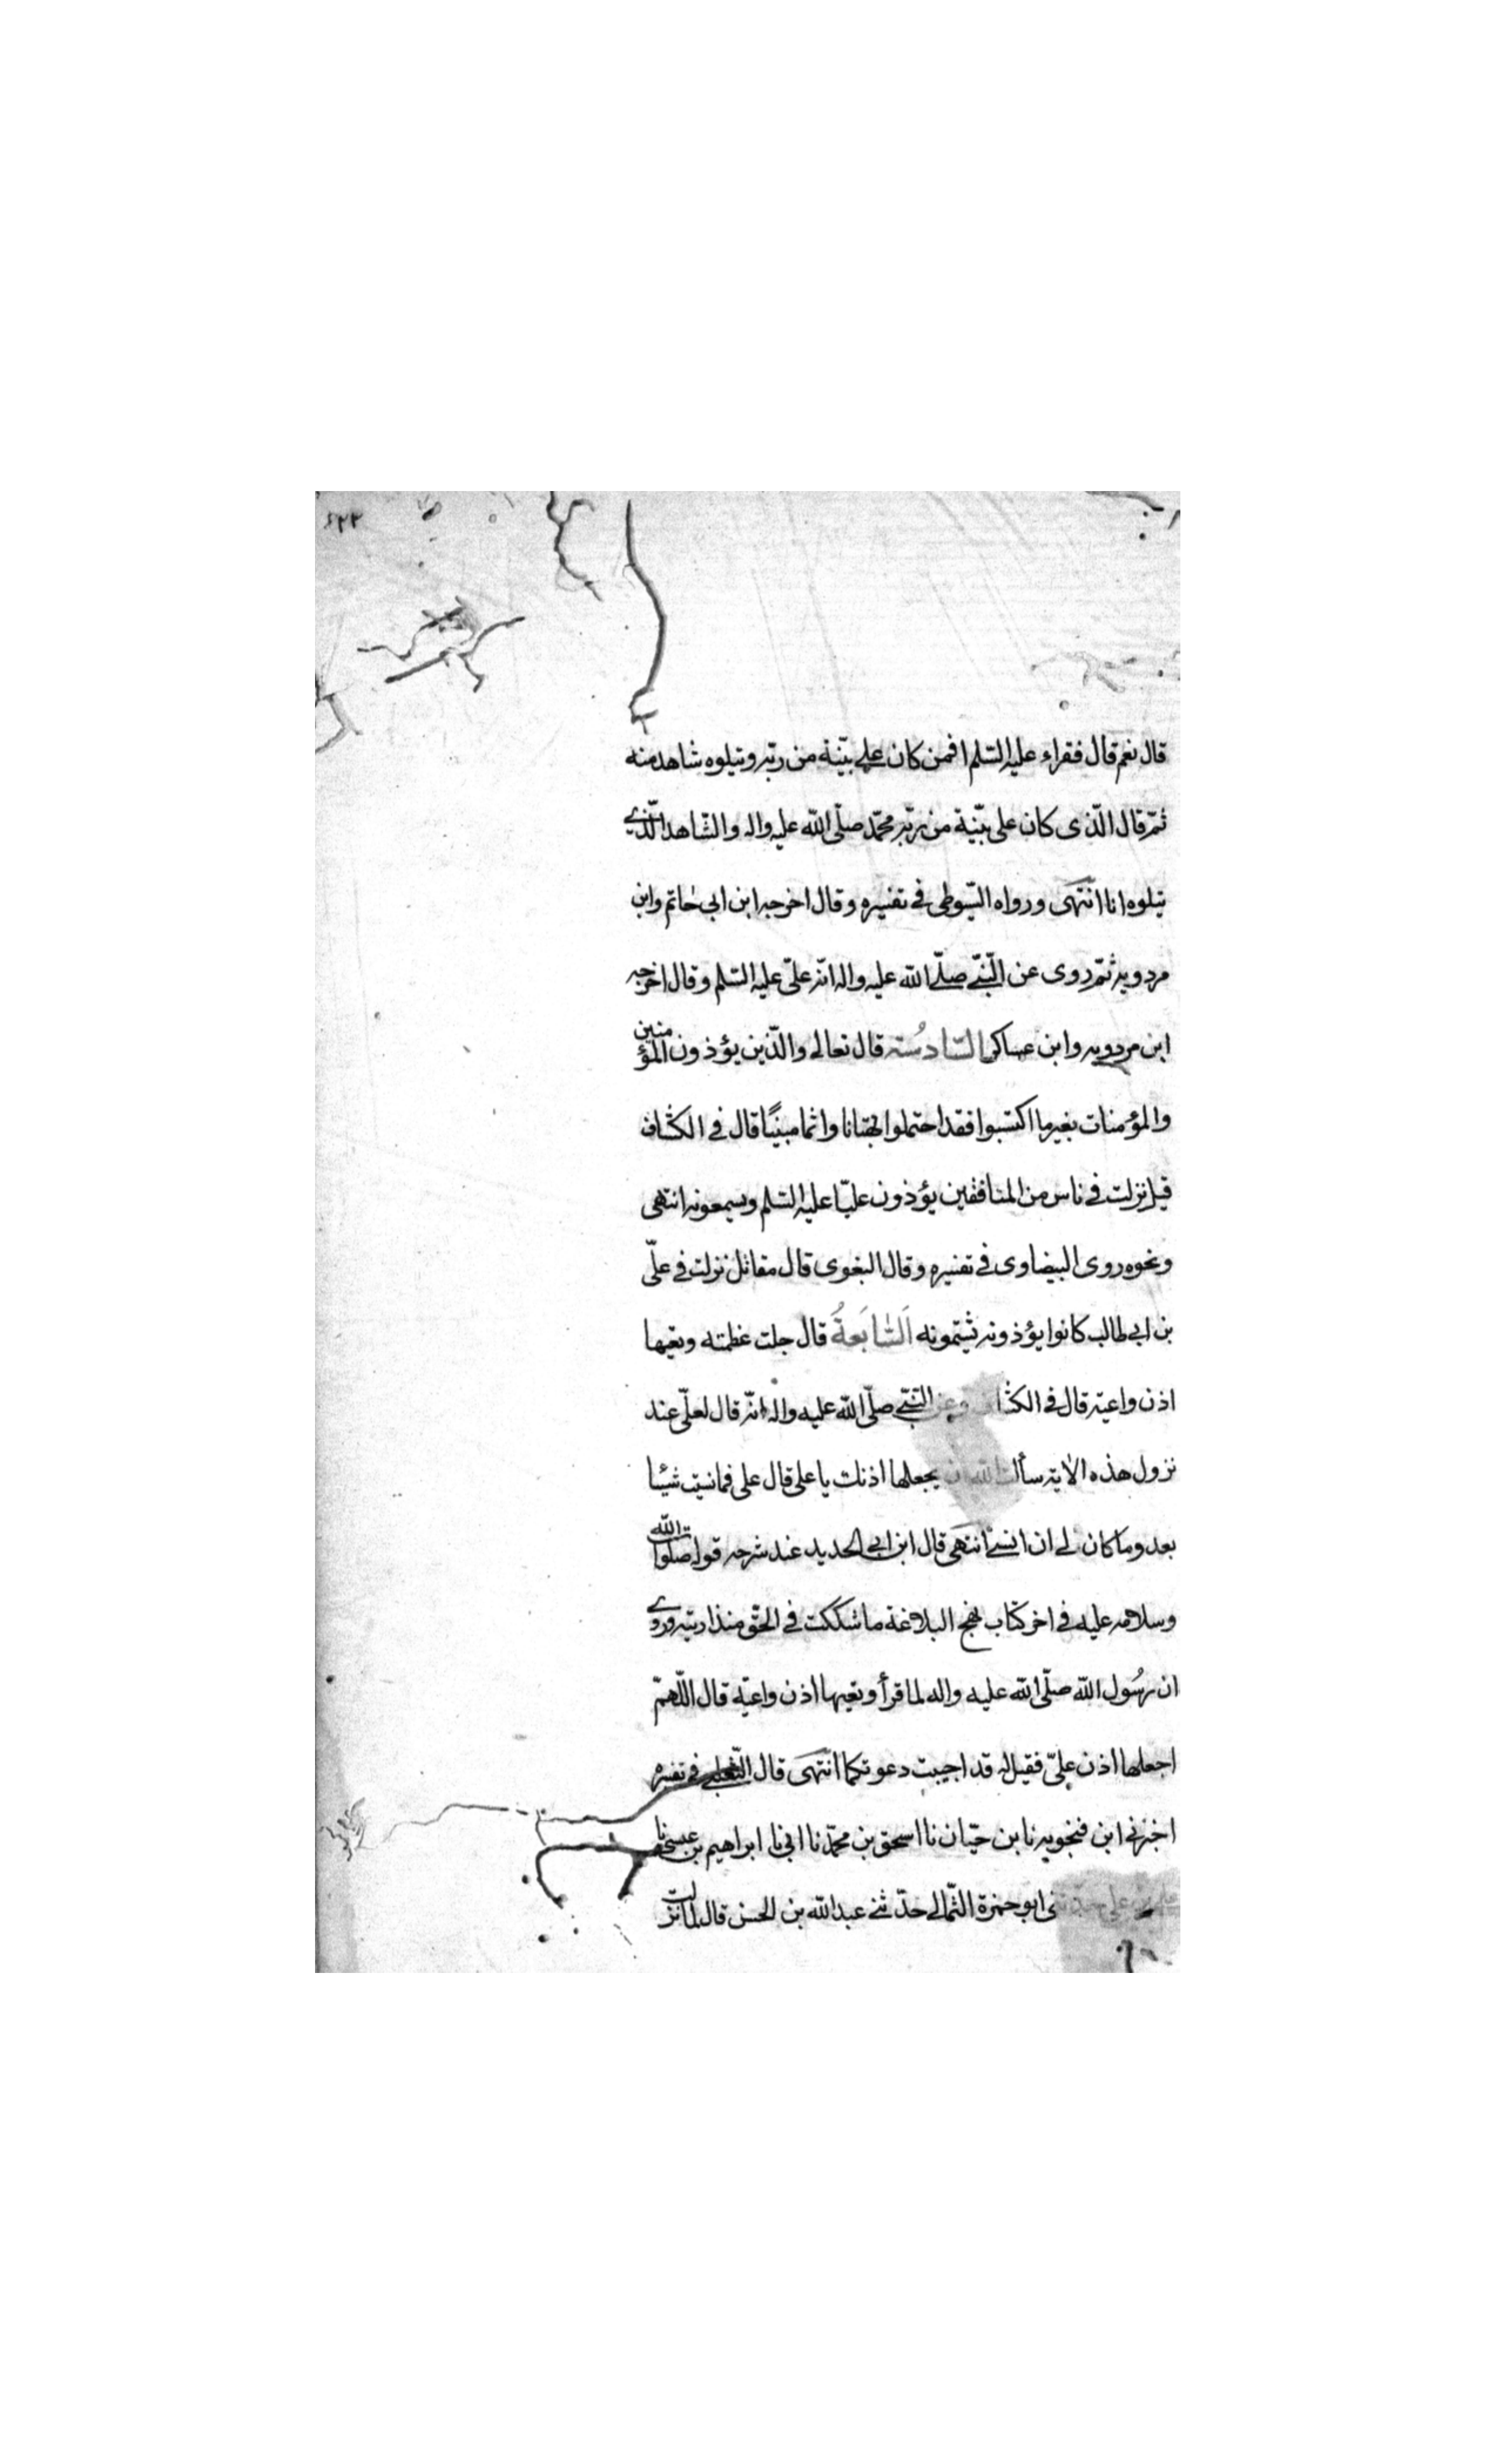 ٤٢٢
قال نعم قال فقراء عليه السّلم افمن كان على بيّنة من ربّه ويتلوه شاهد منه
ثمّ قال الّذى كان على بيّنة من ربّه محمّد صلّى الله عليه واله والشّاهد الّذى
يتلوه انا انتهى ورواه السّيوطى فى تفسيره وقال اخرجه ابن ابى حاتم وابن
مردويه ثمّ روى عن النّبىّ صلّى الله عليه واله انّه علىّ عليه السّلم وقال اخرجه
ابن مردويه وابن عساكر السّادسُة قال تعالى والّذين يؤذون المؤمنين
والمؤمنات بغير ما اكتسبوا فقد احتملوا بهتانا واثما مبينًا قال فى الكشاف
قيل نزلت فى ناس من المنافقين يؤذون عليّا عليه السّلم ويسمعونه انتهى
ونحوه روى البيضاوى فى تفسيره وقال البغوى قال مقاتل نزلت فى علىّ
بن ابى طالب كانوا يؤذونه يشتمونه اَلسّابَعةُ قال جلت عظمته وتعيها
اذن واعية قال فى الكشاف وعن النّبىّ صلّى الله عليه واله انّه قال لعلىّ عند
نزول هذه الاية سألت الله ان يجعلها اذنك يا على قال على فما نسيت شيئا
بعد وما كان لى ان انسى انتهى قال ابن ابى الحديد عند شرحه قوله صلوات الله
وسلامه عليه فى اخر كتاب نهج البلاغة ما شككت فى الحقّ منذ اريته وروى
ان رسُول الله صلّى الله عليه واله لما قرأ وتعيها اذن واعيه قال اللّهمّ
اجعلها اذن علىّ فقيل له قد اجيبت دعوتكما انتهى قال الثّعلبى فى تفسيره
اخبرنى ابن فنجويه نا بن حيّان نا اسحق بن محمّد نا ابى نا ابراهيم بن عيسى نا
على بن على حدّثنى ابو حمزة الثّمالى حدّثنى عبد الله بن الحسن قال لما نزلت